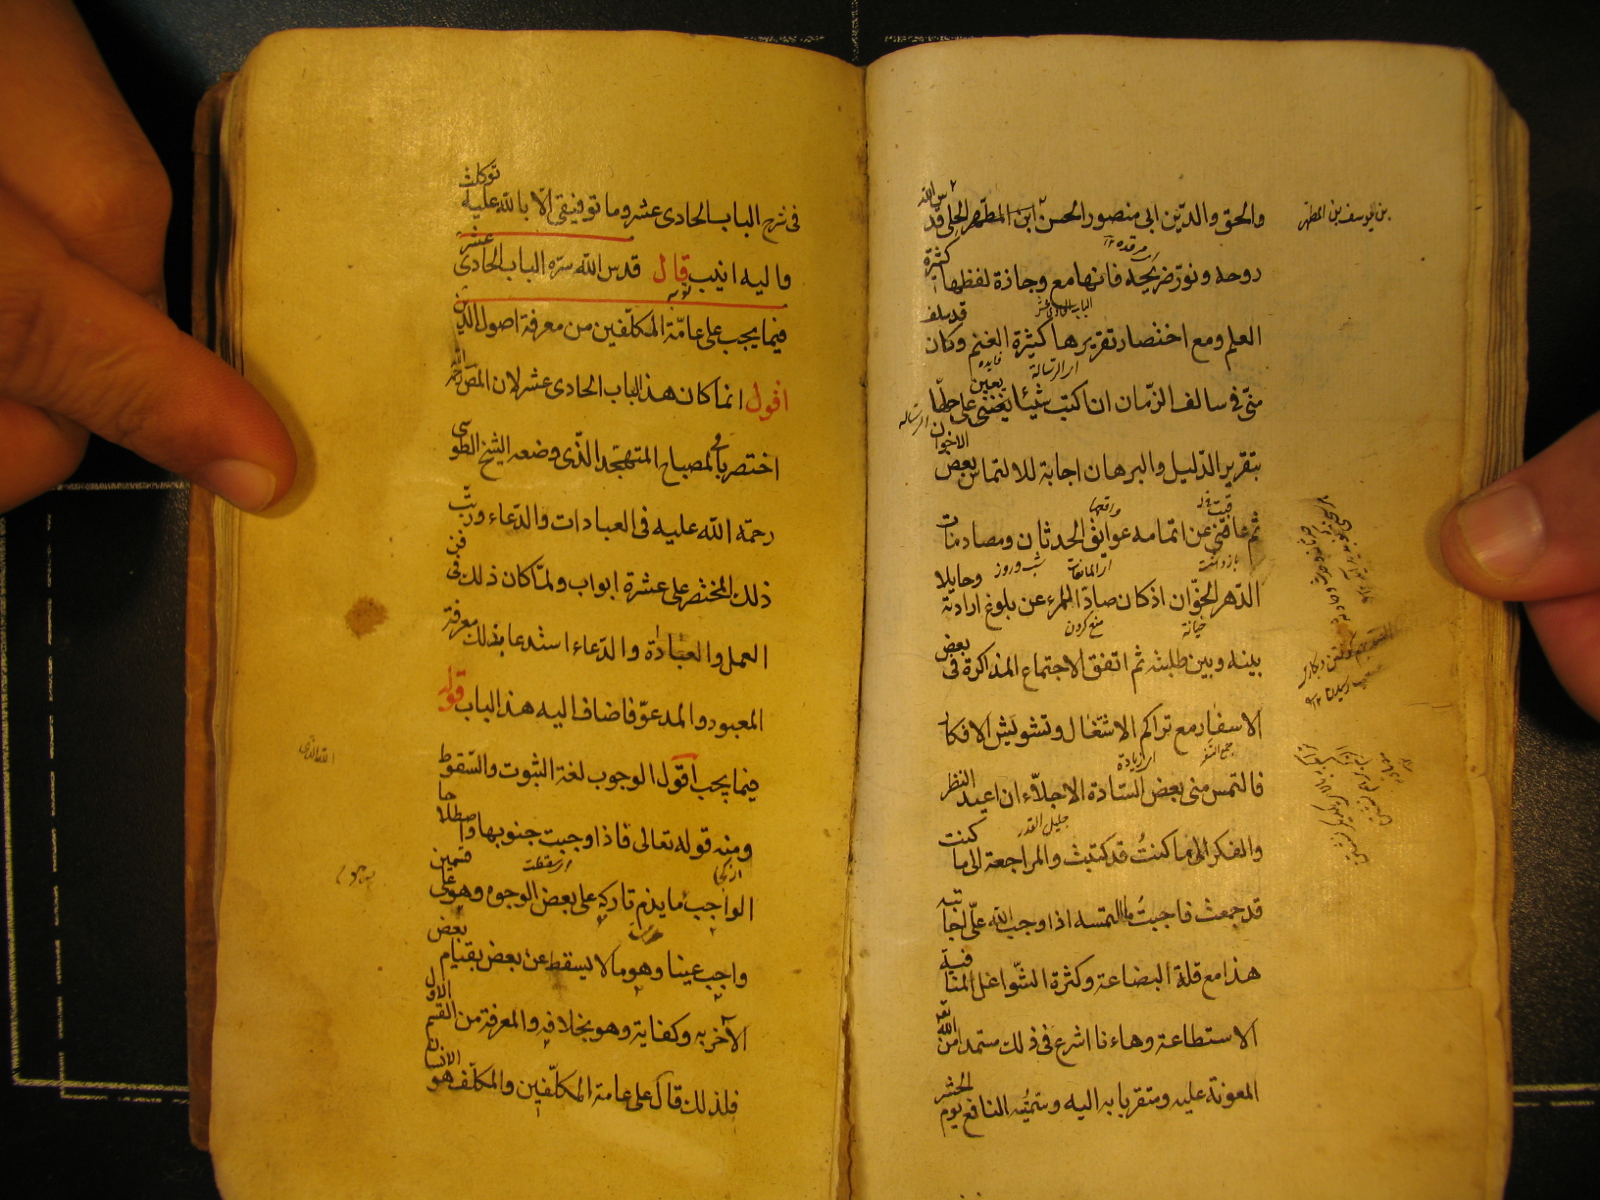 والحق والدّين ابى منصور الحسن ابن المطهر الحلى قدس الله
بن يوسف بن المطهر
روحه ونوّر ضريحه فانها مع وجازة لفظها كثيرة
مرقده ١٢
العلم ومع اختصار تقريرها كثيرة الغنم وكان قد سلف
الباب الحادى عشر
فايده
اى الرسالة
منّى فى سالف الزّمان ان اكتب شيئا يعين على حلّها
اى الرساله
بتقرير الدّليل والبرهان اجابة لالتماس بعض الاخوان
ثم عاقنى عن اتمامه عوايق الحدثان ومصادمات
بازداشت
اى المانعات
شب وروز
الدّهر الخوّان اذ كان صادّا للمرء عن بلوغ ارادته وحايلا
خيانة
منع كردن
بينه وبين طلبته ثم اتفق الاجتماع المذاكرة فى بعض
الاسفار مع تراكم الاشغال وتشويش الافكار
جمع السفر
اى زيادة
فالتمس منى بعض السّادة الاجلاّء ان اعيد النظر
جليل القدر
والفكر الى ما كنتُ قد كتبت والمراجعة الى ما كنت
قد جمعت فاجبتُ ملتمسه اذ اوجب الله علّى اجابته
هذا مع قلة البضاعة وكثرة الشّواغل المنافية
الاستطاعة وها انا اشرع فى ذلك مستمدا من الله تعالى
المعونة عليه ومتقربا به اليه وسمّيته النافع يوم الحشر
فى شرح الباب الحادى عشر وما توفيقى الّا بالله عليه توكلت
واليه انيب قال قدس الله سرّه الباب الحادى عشر
فيما يجب على عامّة المكلّفين من معرفة اصول الدّين
اقول انما كان هذا الباب الحادى عشر لان المص
اختصر بالمصباح المتهجّد الّذى وضعه الشيخ الطوسى
رحمة الله عليه فى العبادات والدّعاء ورتّب
ذلك المختصر على عشرة ابواب ولمّا كان ذلك فى فن
العمل والعبادة والدّعاء استدعا بذلك معرفة
المعبود والمدعوّ فاضاف اليه هذا الباب قوله
فيما يجب اقول الوجوب لغة الثبوت والسّقوط
ومنه قوله تعالى فاذا وجبت جنوبها واصطلاحا
اى سقطت
الواجب ما يذم تاركه على بعض الوجوه وهو على قسمين
واجب عينا وهو ما لا يسقط عن بعض بقيام بعض
الآخر به وكفاية وهو بخلافه والمعرفة من القسم الاول
فلذلك قال على عامة المكلّفين والمكلّف هو الانسان